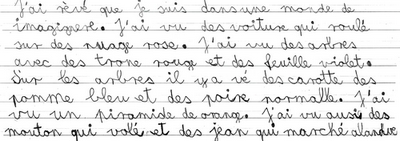 J'ai rêvé que je suis dans une monde de
imaginere. J'ai vu des voiture qui roulé
sur des nuage rose. J'ai vu des arbres
avec des tronc rouge et des feuille violet.
Sur les arbres il y a vé des carotte des
pomme bleu et des poire normalle. J'ai
vu un piramide de orang. J'ai vu ausi des
mouton qui volé et des jean qui marché